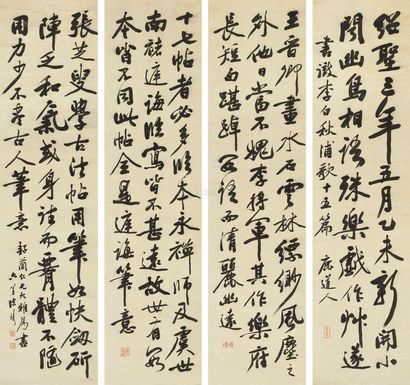 紹聖三年五月乙未新開小
聞幽鳥相語殊樂戲作艸遂
書徹李白秋浦歌十五篇 道人
王晉卿畫水石雲林縹緲風塵之
外他日當不愧李將軍其作樂府
長短句踸踔口語而清麗幽遠
十七帖者必多臨本永禪師及虞世
南顏庭誨臨寫皆不甚遠故世有數
本皆不同此帖全是庭誨筆意
張芸叟學古法帖用筆如快劍斫
陣乏和氣或身法而體不隨
用力少不盡古人筆意 蘭仁兄大雅屬書